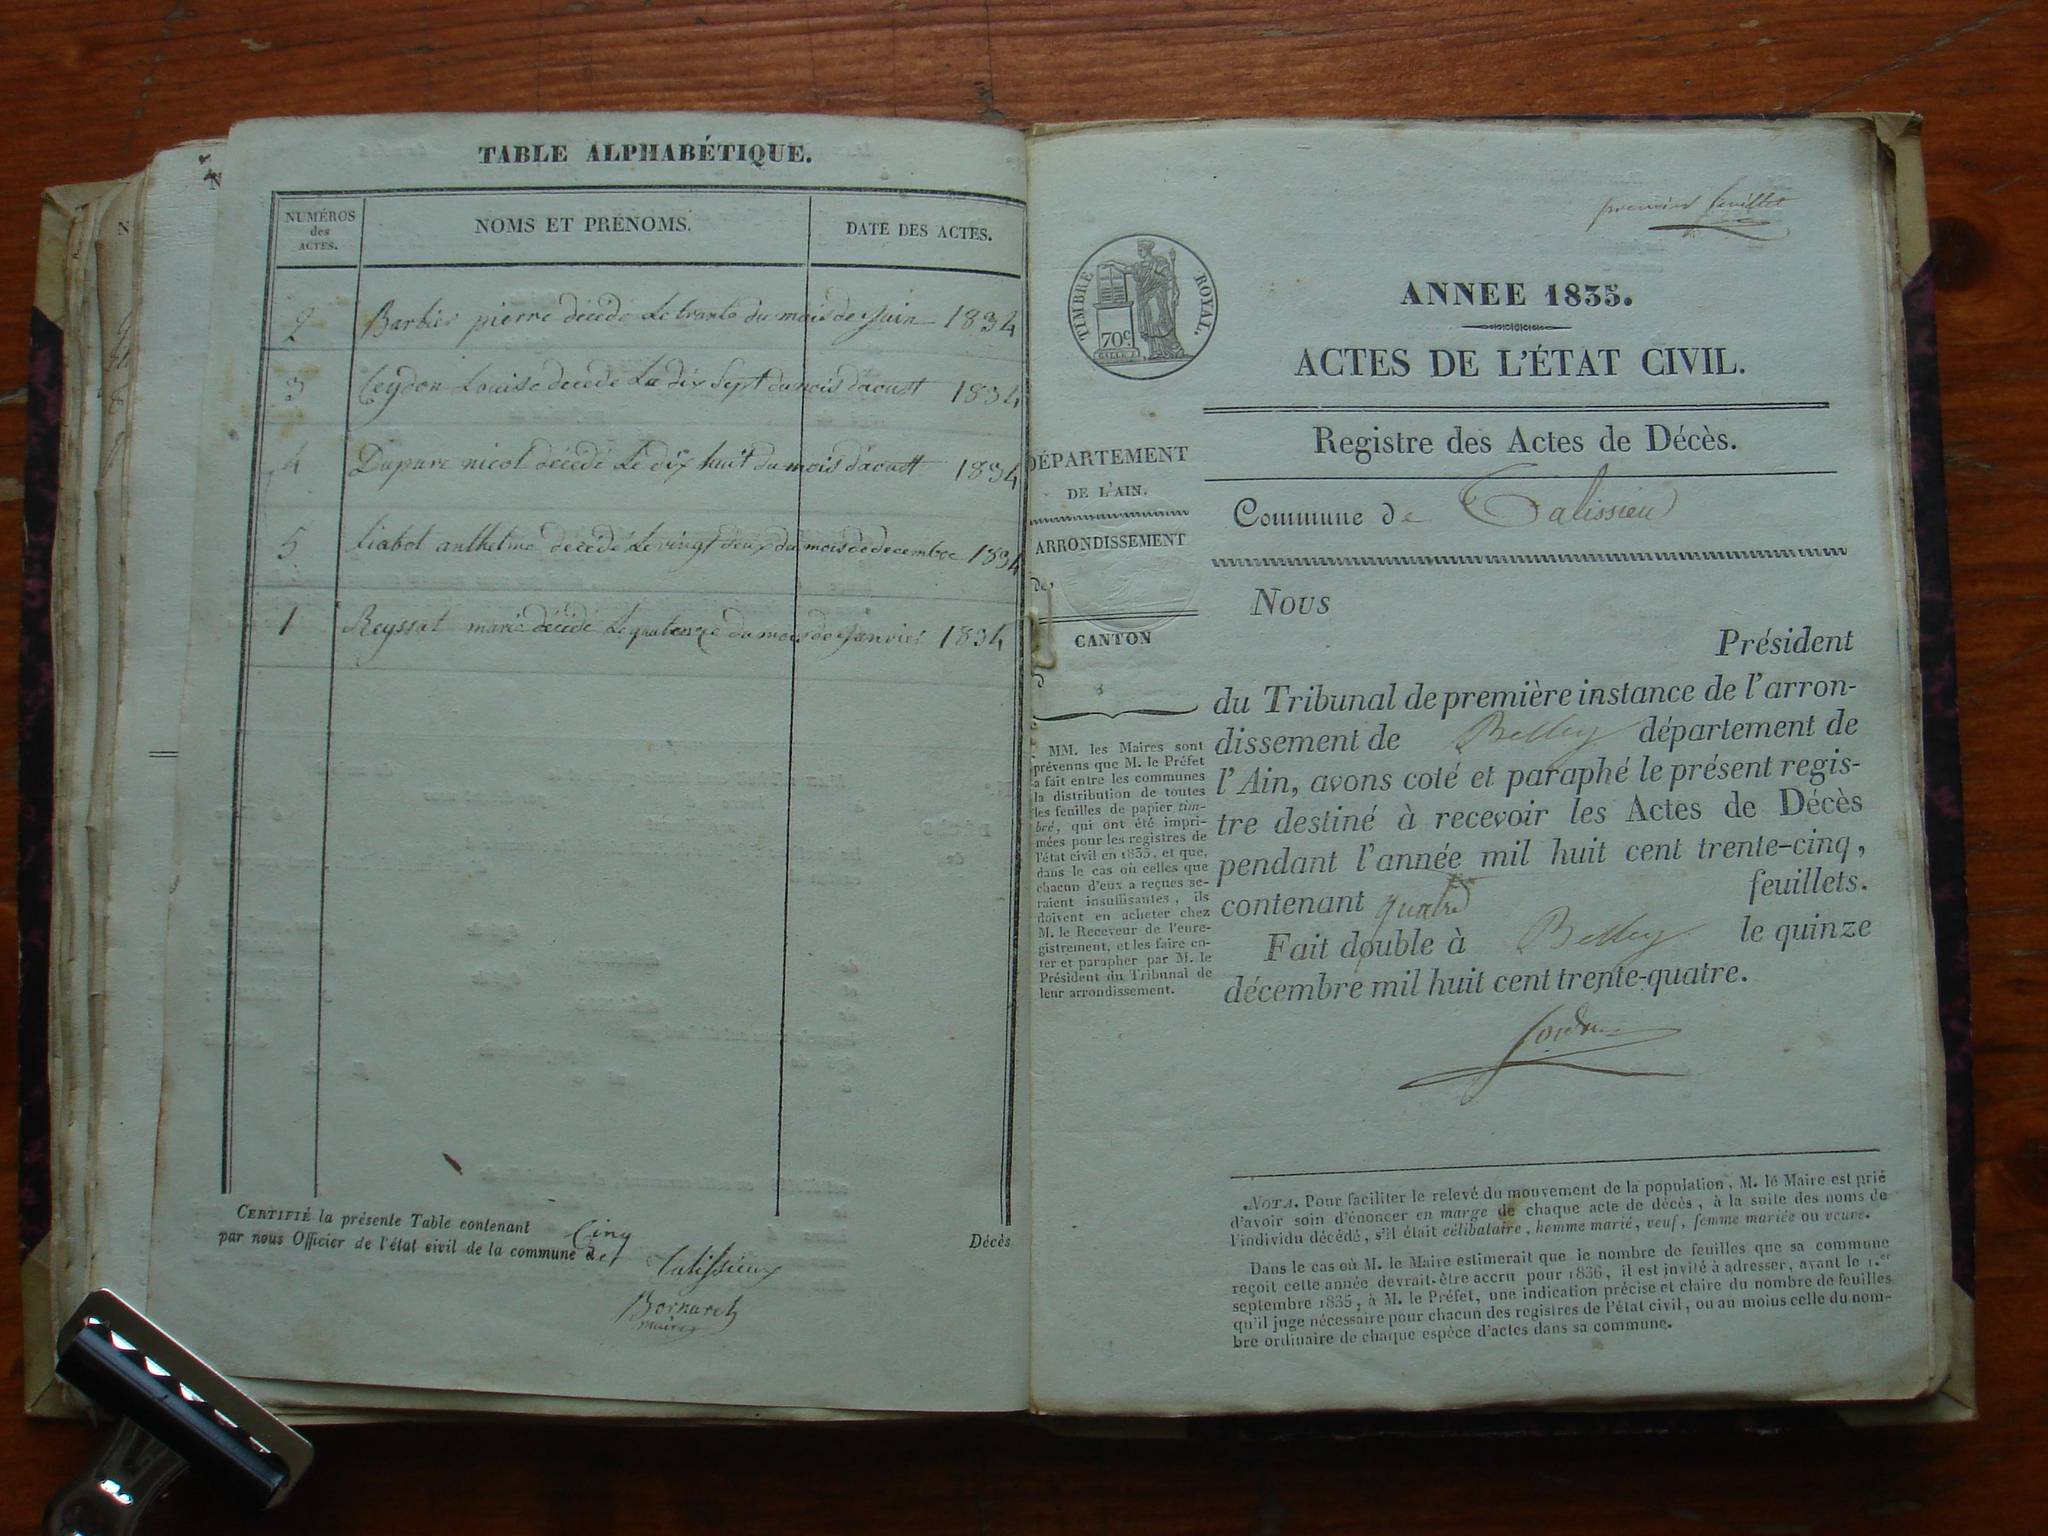 TABLE ALPHABÉTIQUE.
NUMÉROS
des
ACTES.
NOMS ET PRÉNOMS.
DATE DES ACTES.
2 Barbier pierre décédé Le trante du mois de Juin 1834
3 Ceydon Louise decede La dix Sept du mois d'aoust 1834
4 Dupurc nicol décédé Le dix huit du mois d'aoust 1834
5 liabol anthelme décédé Le vingt deux du mois de decembre 1834
1 Reyssat marie décédé Le quatorze du mois de Janvier 1834
CERTIFIÉ la présente Table contenant Cinq Décès
par nous Officier de l'état civil de la commune de
Talissieux
Bornarel
maire
premier feuillet
TIMBRE ROYAL.
70c.
ANNEE 1835.
ACTES DE L'ÉTAT CIVIL.
Registre des Actes de Décès.
DÉPARTEMENT
DE L'AIN.
ARRONDISSEMENT
de
CANTON
d
Commune de Talissieu
Nous
Président
du Tribunal de première instance de l'arron-
dissement de Belley département de
l'Ain, avons coté et paraphé le présent regis-
tre destiné à recevoir les Actes de Décès
pendant l'année mil huit cent trente-cinq,
contenant quatre feuillets.
Fait double à Belley le quinze
décembre mil huit cent trente-quatre.
MM. les Maires sont
prévenus que M. le Préfet
a fait entre les communes
la distribution de toutes
les feuilles de papier tim-
bré, qui ont été impri-
mées pour les registres de
l'état civil en 1835, et que,
dans le cas où celles que
chacun d'eux a reçues se-
raient insuffisantes, ils
doivent en acheter chez
M. le Receveur de l'enre-
gistrement, et les faire co-
ter et parapher par M. le
Président du Tribunal de
leur arrondissement.
NOTA. Pour faciliter le relevé du mouvement de la population, M. le Maire est prié
d'avoir soin d'énoncer en marge de chaque acte de décès, à la suite des noms de
l'individu décédé, s'il était célibataire, homme marié, veuf, femme mariée ou veuve.
Dans le cas où M. le Maire estimerait que le nombre de feuilles que sa commune
reçoit cette année devrait-être accru pour 1836, il est invité à adresser, avant le 1.er
septembre 1835, à M. le Préfet, une indication précise et claire du nombre de feuilles
qu'il juge nécessaire pour chacun des registres de l'état civil, ou au moins celle du nom-
bre ordinaire de chaque espèce d'actes dans sa commune.